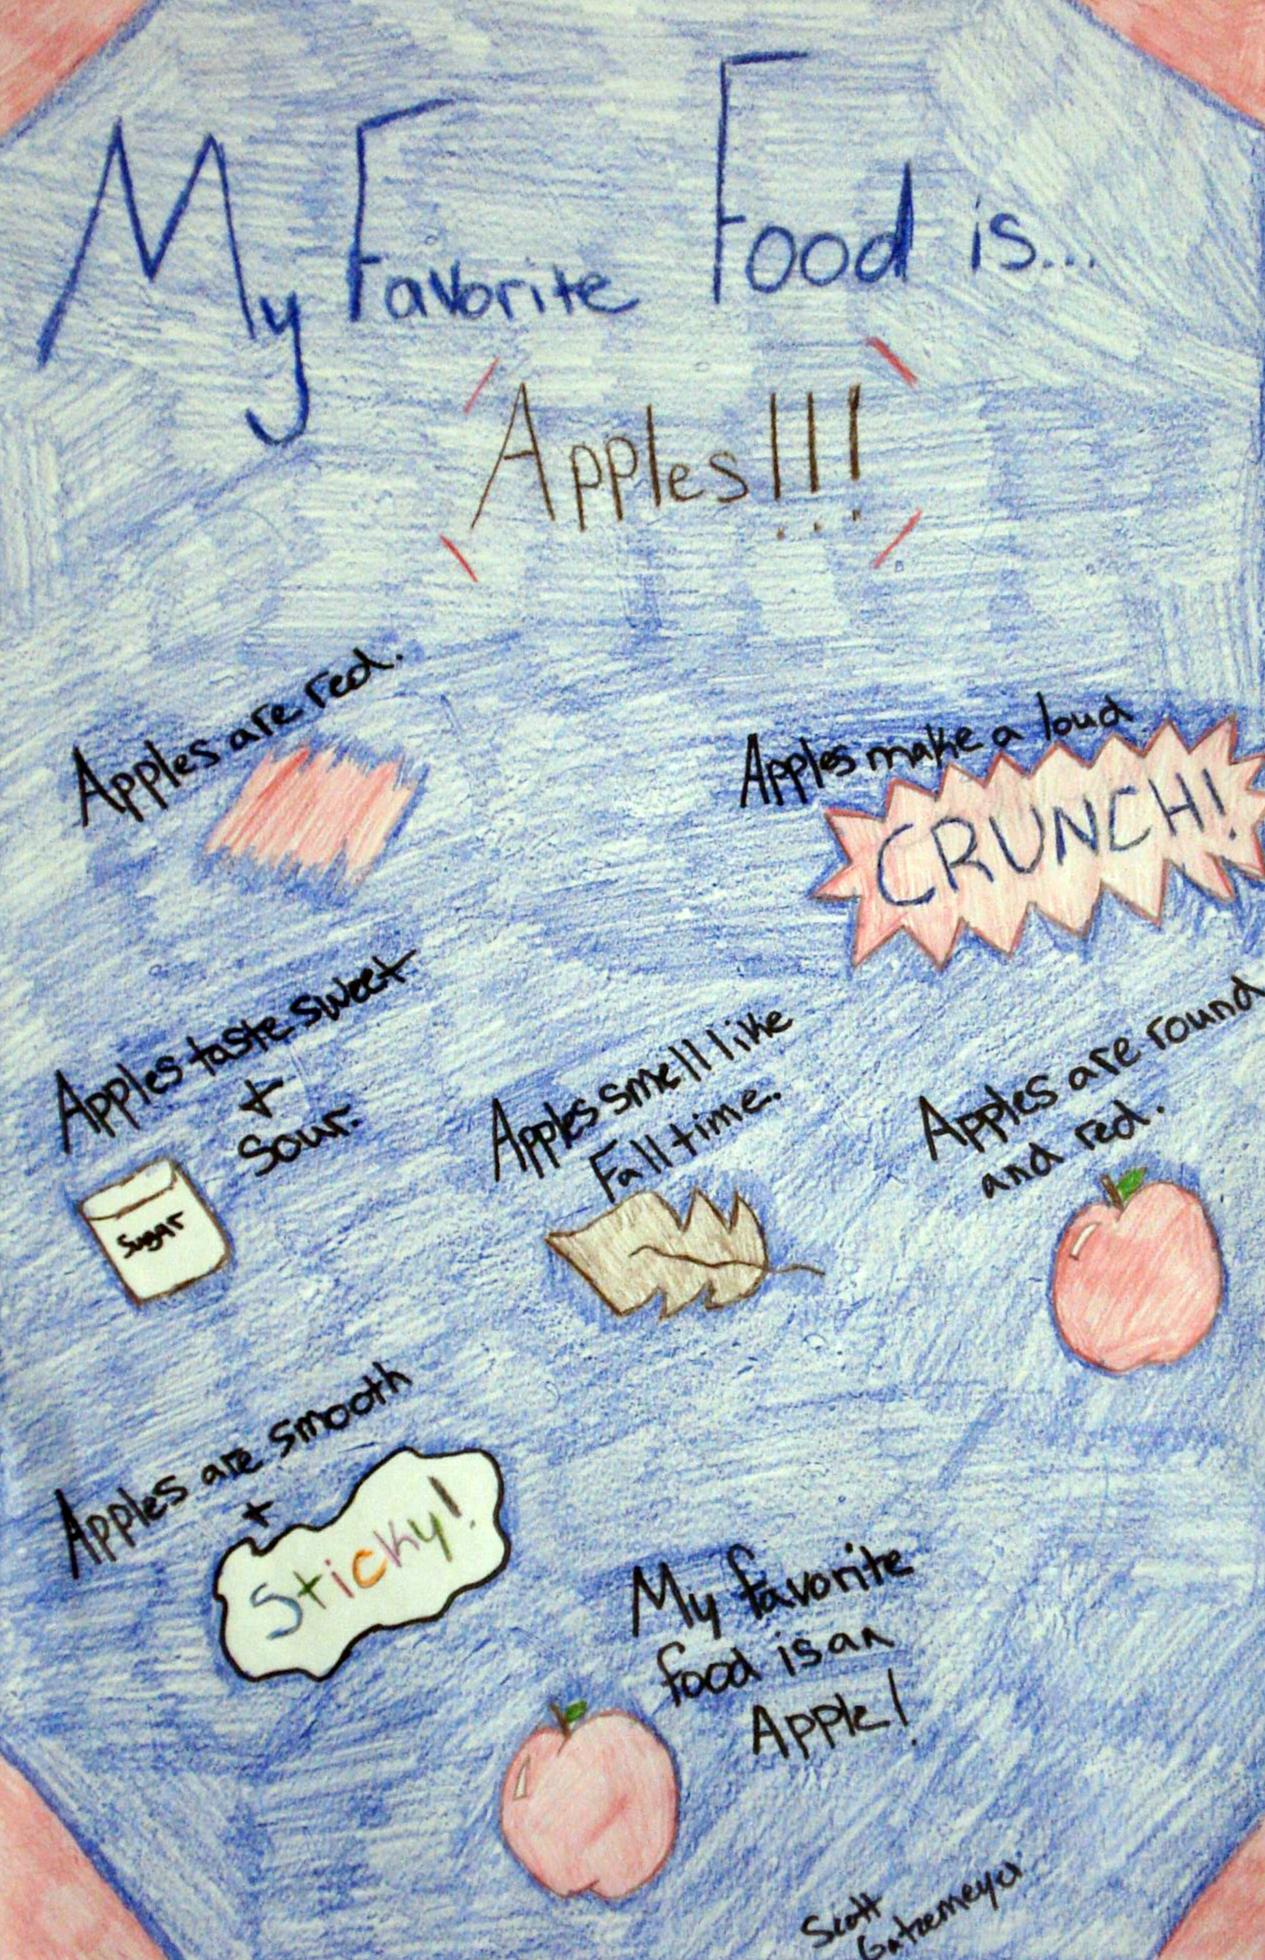 My Favorite Food is...
Apples!!!
Apples are red.
Apples make a loud
CRUNCH!
Apples taste sweet
+
Sour.
Sugar
Apples smell like
Fall time.
Apples are round
and red.
Apples are smooth
+
Sticky!
My favorite
food is an
Apple!
Scott